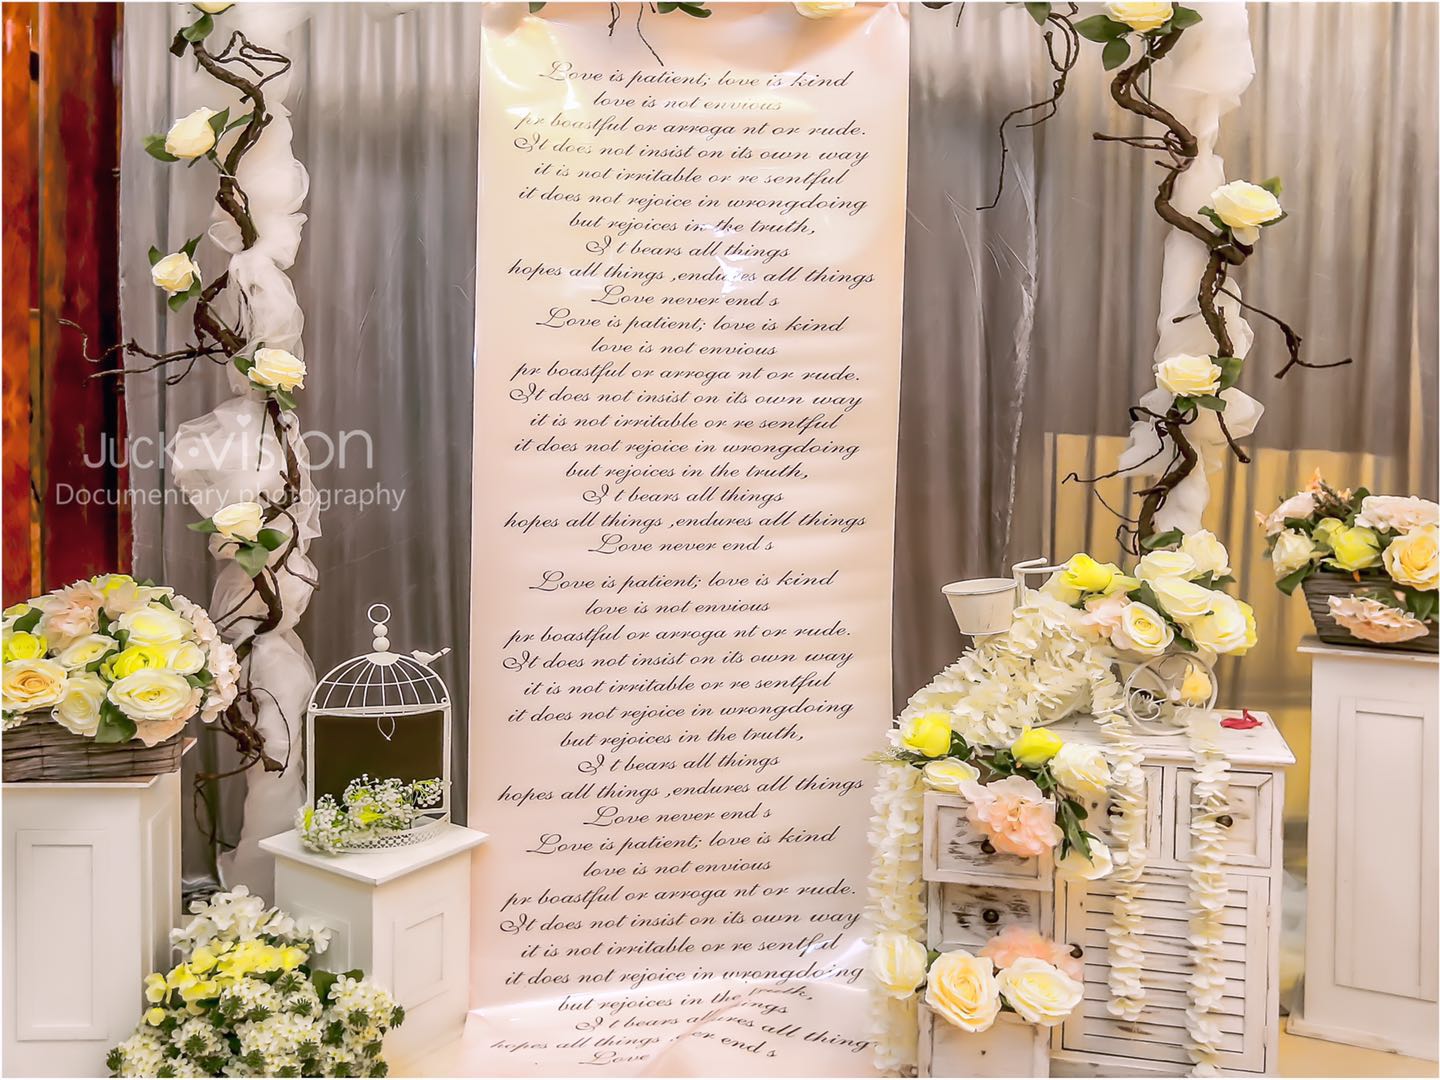 Love is patient; love is kind
love is not envious
pr boastful or arroga nt or rude.
It does not insist on its own way
it is not irritable or re sentful
it does not rejoice in wrongdoing
but rejoices in the truth,
I t bears all things
hopes all things ,endures all things
Love never end s
Love is patient; love is kind
love is not envious
pr boastful or arroga nt or rude.
It does not insist on its own way
it is not irritable or re sentful
it does not rejoice in wrongdoing
but rejoices in the truth,
I t bears all things
hopes all things ,endures all things
Love never end s
Juck·vision
Documentary photography
Love is patient; love is kind
love is not envious
pr boastful or arroga nt or rude.
It does not insist on its own way
it is not irritable or re sentful
it does not rejoice in wrongdoing
but rejoices in the truth,
I t bears all things
hopes all things ,endures all things
Love never end s
Love is patient; love is kind
love is not envious
pr boastful or arroga nt or rude.
It does not insist on its own way
it is not irritable or re sentful
it does not rejoice in wrongdoing
but rejoices in the truth,
I t bears all things
hopes all things all things
Love end s